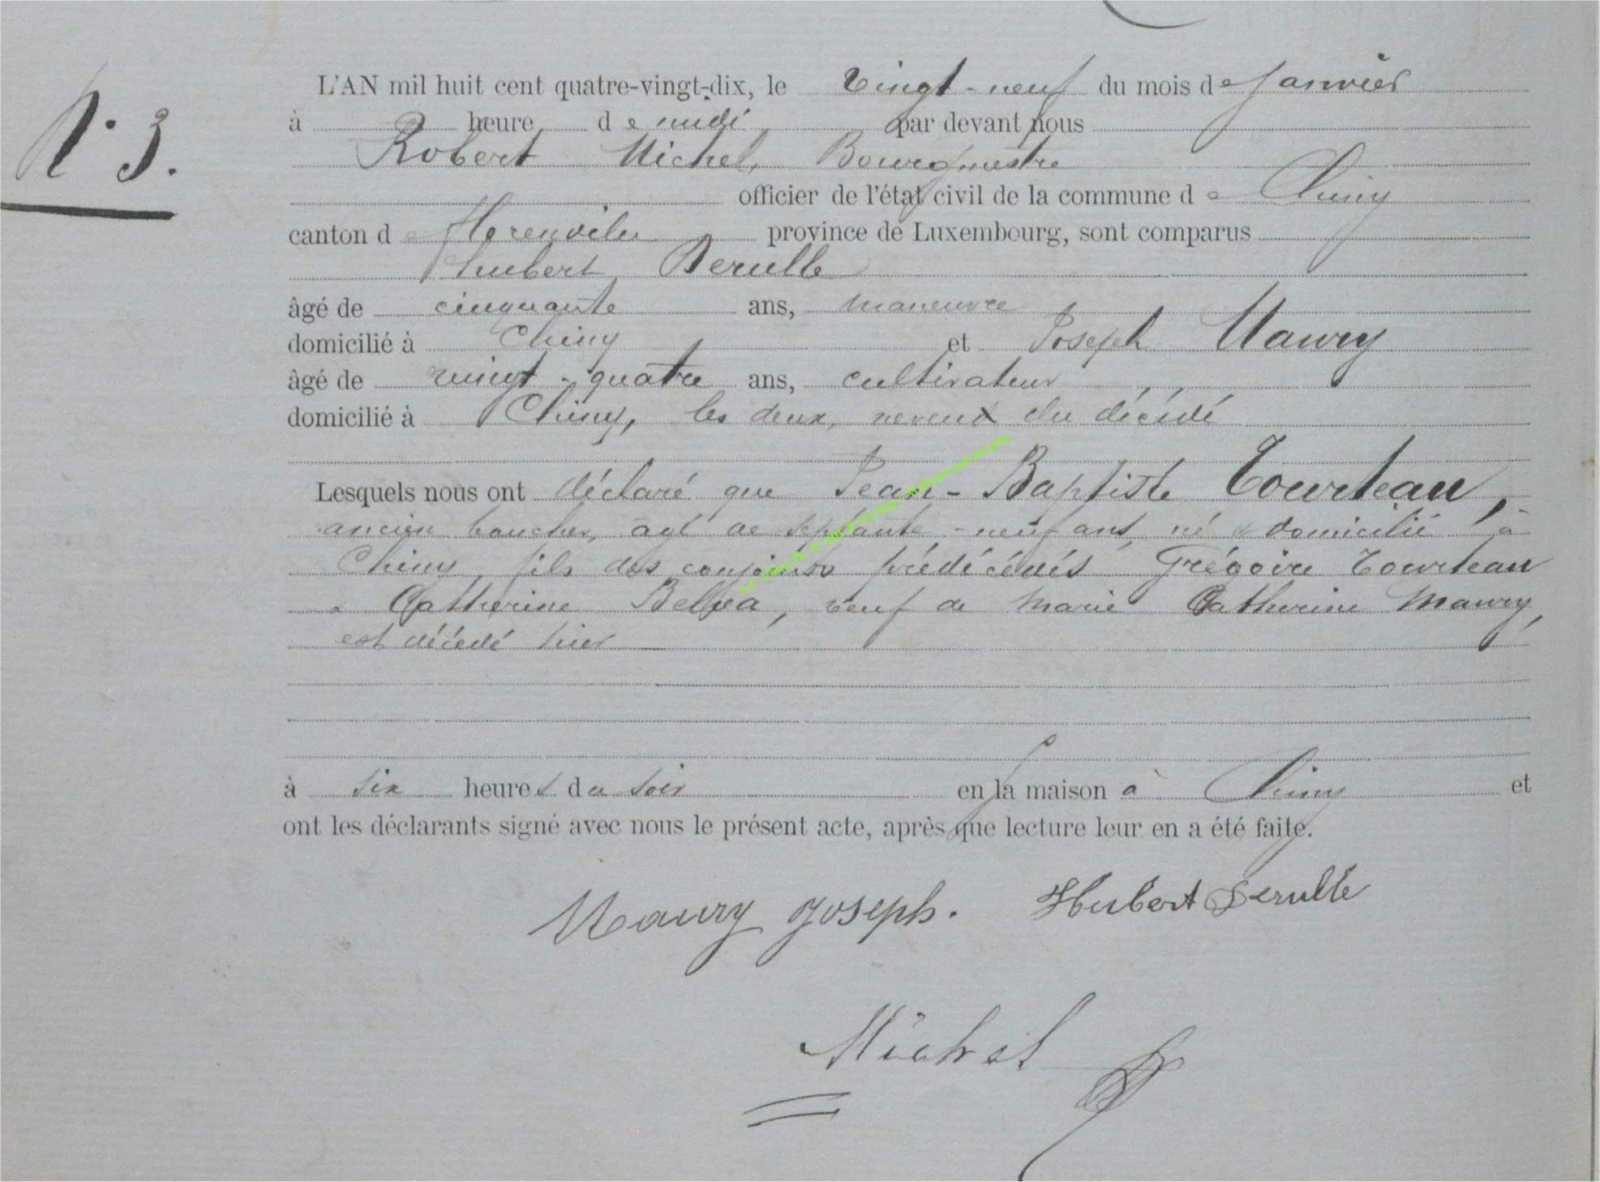 N° 3.
L'AN mil huit cent quatre-vingt-dix, le vingt-neuf du mois de Janvier
à heure de midi par devant nous
Robert Michel, Bourgmestre
officier de l'état civil de la commune de Chiny
canton de Florenville province de Luxembourg, sont comparus
Hubert Derulle
âgé de cinquante ans, manœuvre
domicilié à Chiny et Joseph Maury
âgé de vingt-quatre ans, cultivateur
domicilié à Chiny, les deux, neveux du décédé
Lesquels nous ont déclaré que Jean-Baptiste Tourteau,
ancien boucher, agé de septante-neuf ans, né & domicilié à
Chiny, fils des conjoints prédécédés Grégoire Tourteau
& Catherine, veuf de Marie Catherine Maury,
est décédé hier
à six heures du soir en la maison à Chiny et
ont les déclarants signé avec nous le présent acte, après que lecture leur en a été faite.
Maury Joseph. Hubert Derulle
Michel